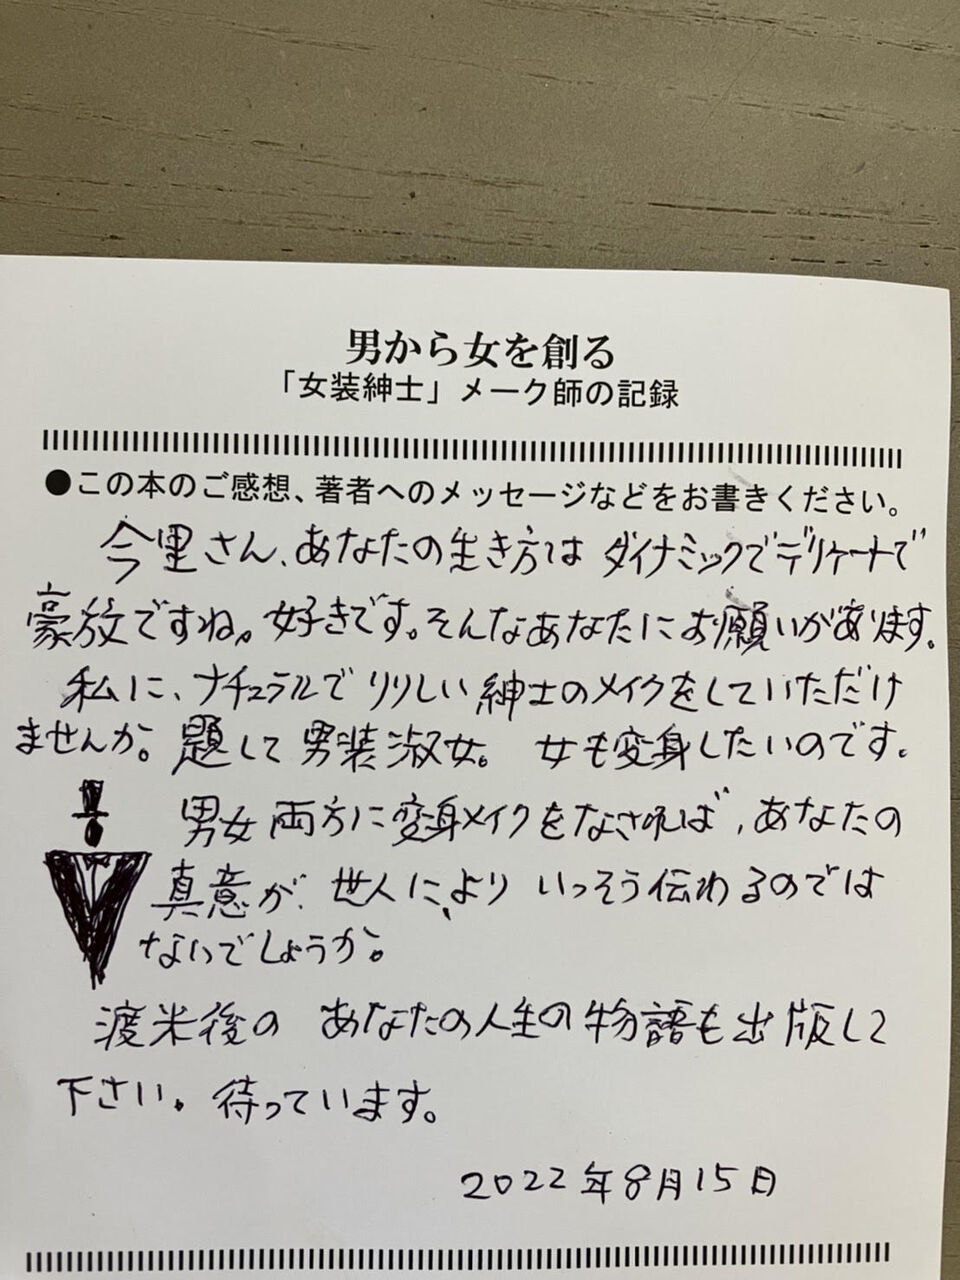 男から女を創る
「女装紳士」メーク師の記録
●この本のご感想、著者へのメッセージなどをお書きください。
今里さん、あなたの生き方は ダイナミックでデリケートで
豪放ですね。好きです。そんなあなたにお願いがあります。
私に、ナチュラルでりりしい紳士のメイクをしていただけ
ませんか。題して男装淑女。 女も変身したいのです。
男女両方に変身メイクをなされば、あなたの
真意が、世人に、より いっそう伝わるのでは
ないでしょうか。
渡米後の あなたの人生の物語も出版して
下さい。待っています。
2022年8月15日